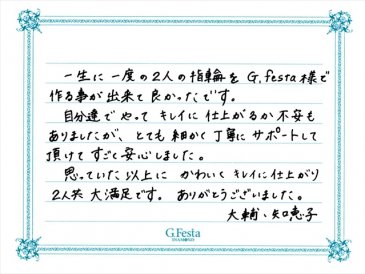 一生に一度の2人の指輪を G.festa様で
作る事が出来て良かったです。
自分達でやって キレイに仕上がるか不安も
ありましたが、とても細かく丁寧に サポートして
頂けて すごく安心しました。
思っていた以上に かわいくキレイに仕上がり
2人共 大満足です。ありがとうございました。
大輔・知恵子
G.Festa
DIAMOND